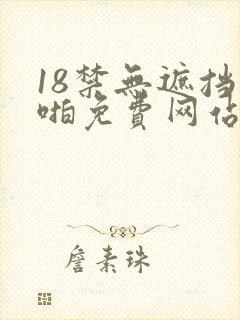 18禁無遮挡
啪免費网佔
詹素珠